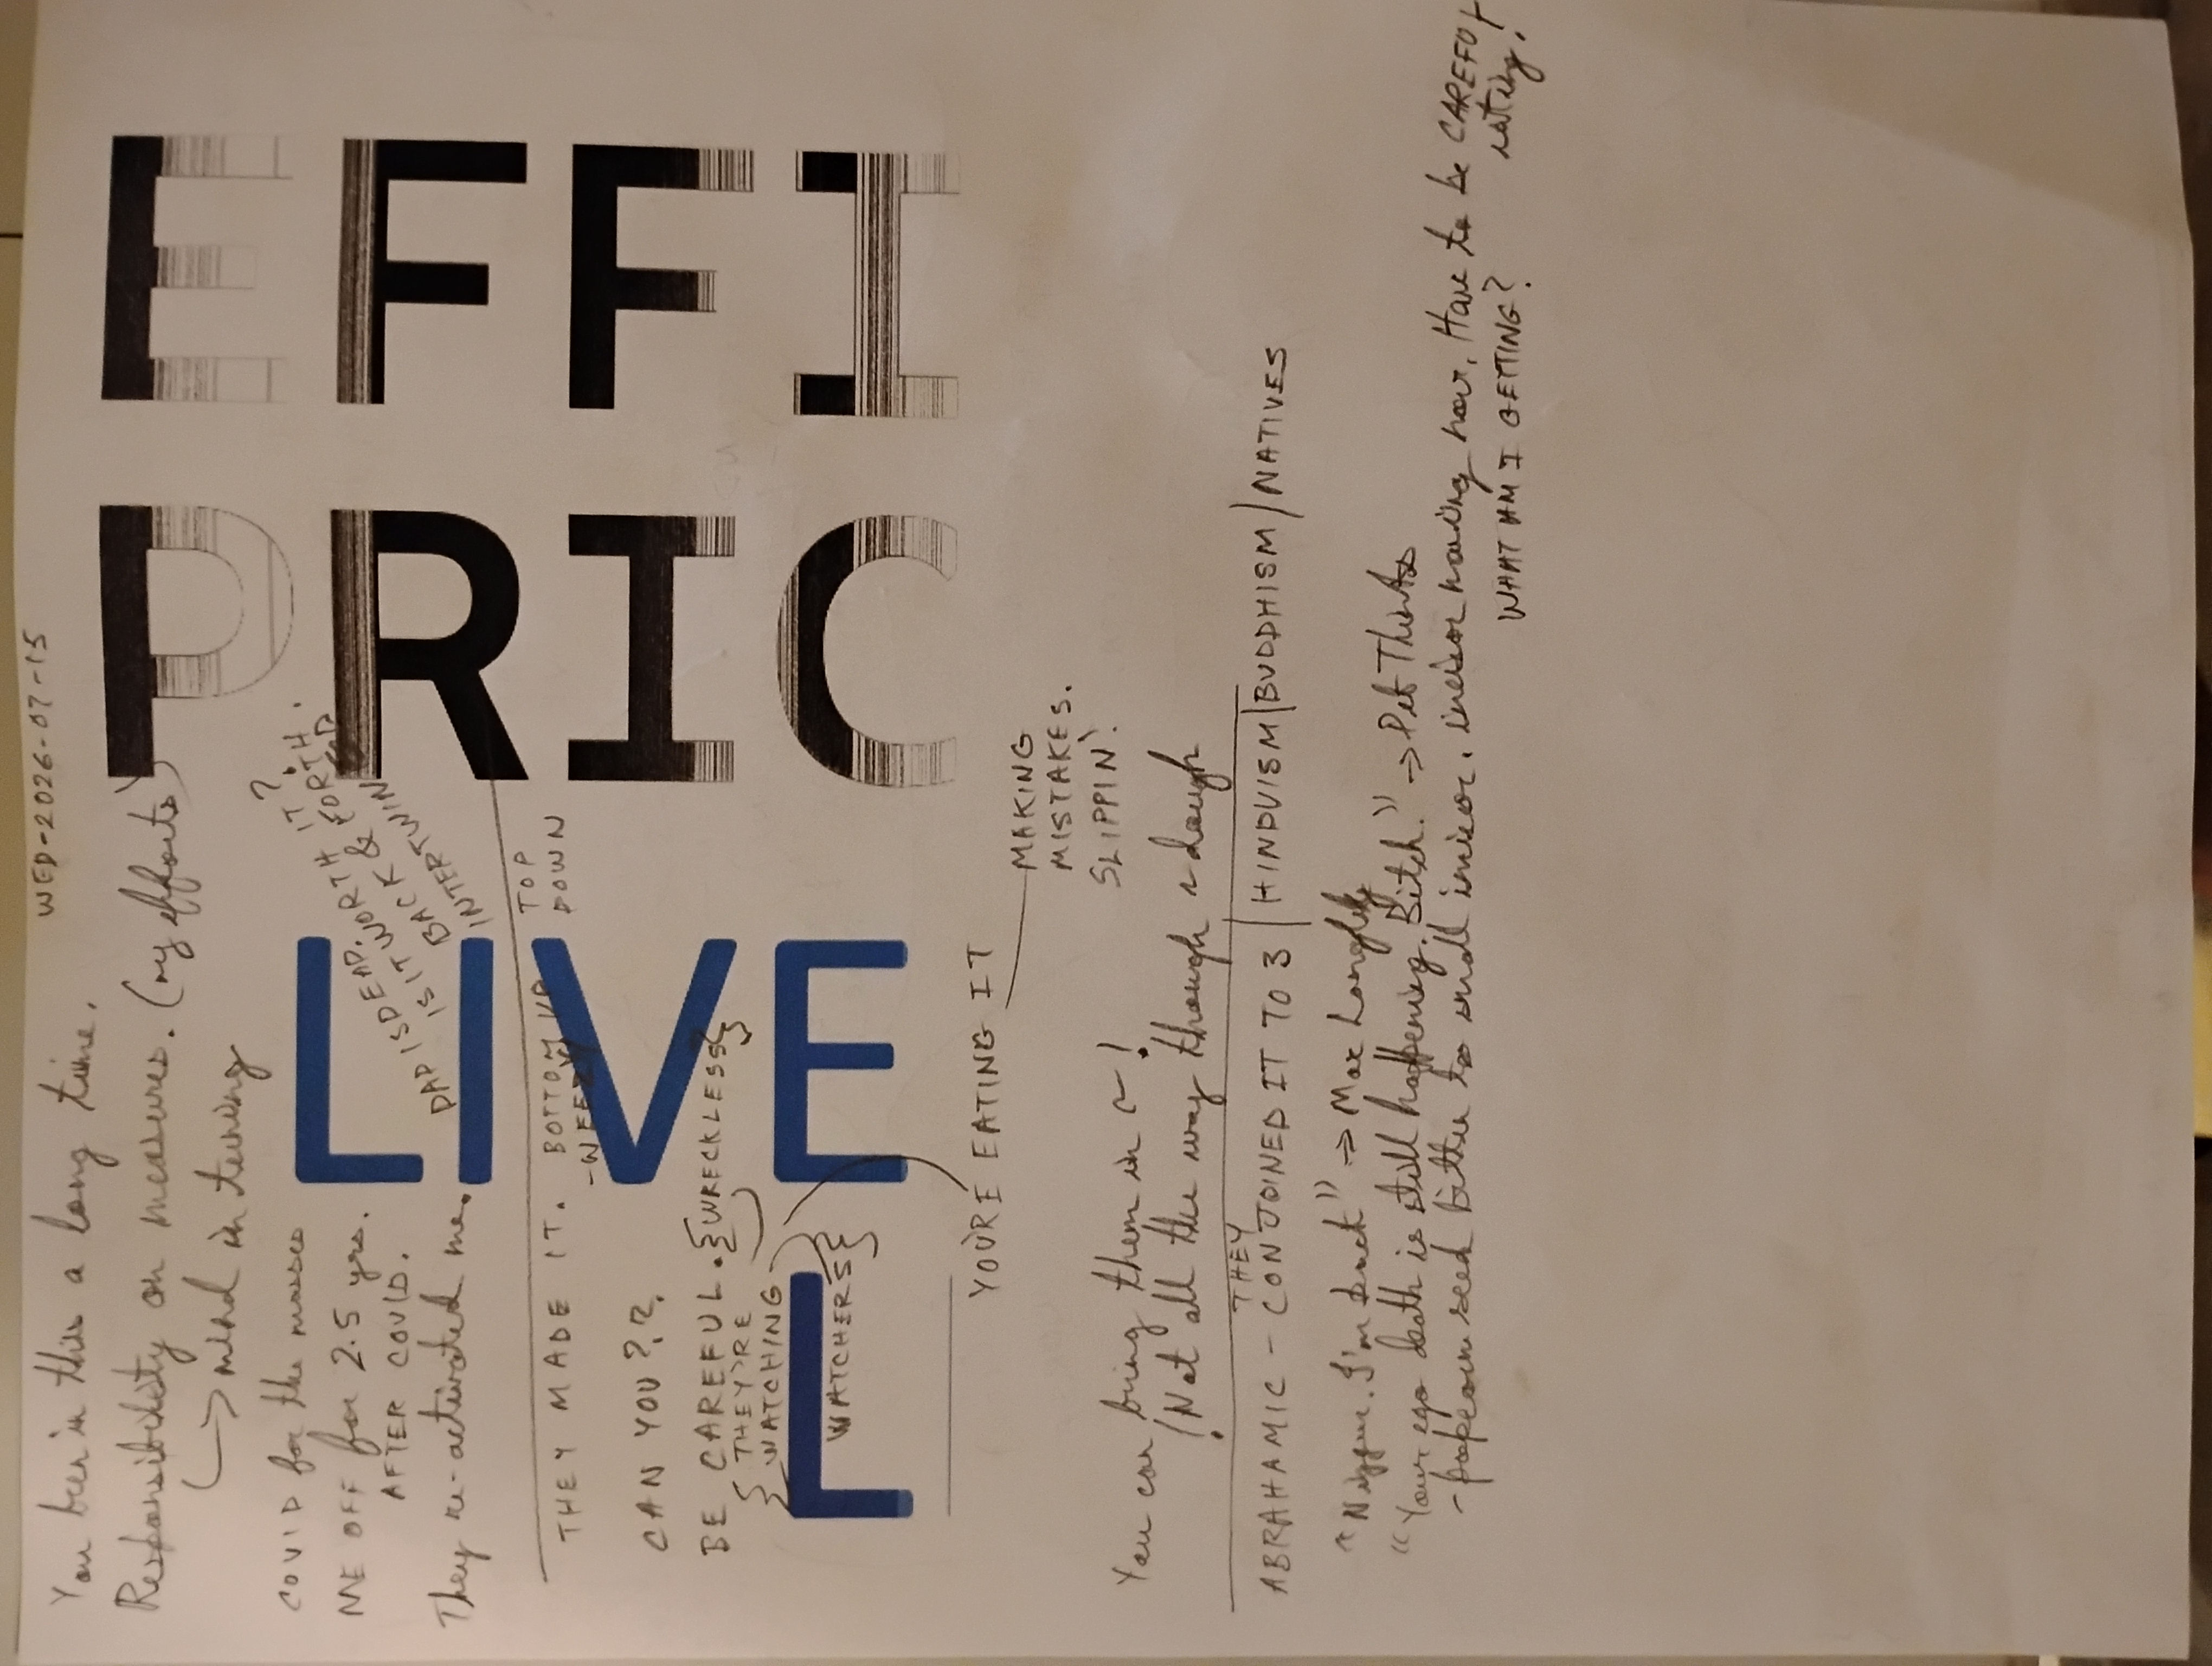 WED-2026-07-15
You been in this a long time.
Responsibility on measures. (my efforts)
→ mind in tuning
COVID for the masses
ME OFF for 2.5 yrs.
AFTER COVID.
They re-activated me.
DAD IS DEAD. WORTH IT?
IS IT WORTH IT?
BACK & FORTH.
INTERTWIN
EFFI
PRIC
LIVE
L
THEY MADE IT. BOTTOM UP
TOP DOWN
CAN YOU??
BE CAREFUL. {WRECKLESS}
{THEY'RE WATCHING
WATCHERS}
YOU'RE EATING IT
MAKING MISTAKES.
SLIPPIN'.
You can bring them in ~!
!Not all the way through ~ though
THEY
ABRAHAMIC - CONJOINED IT TO 3 | HINDUISM | BUDDHISM / NATIVES
I'm drunk" => Max
"Your ego death is still happening, Bitch." => Pet Thinks
- popcorn seed bitten to small incisor, incisor moving now. Have to be CAREFUL eating!
WHAT AM I BETTING?